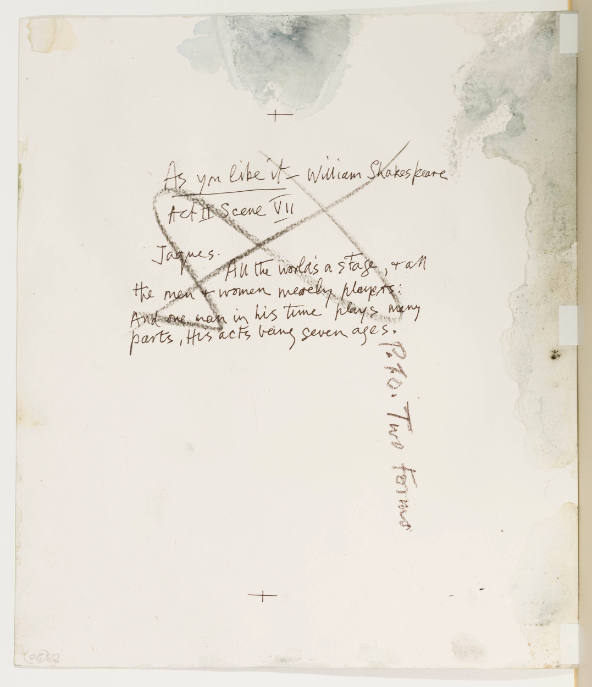 As you like it – William Shakespeare
Act II Scene VII
Jaques.
All the world's a stage, & all
the men & women merely players:
And one man in his time plays many
parts, His acts being seven ages.
P.t.o. Two terms